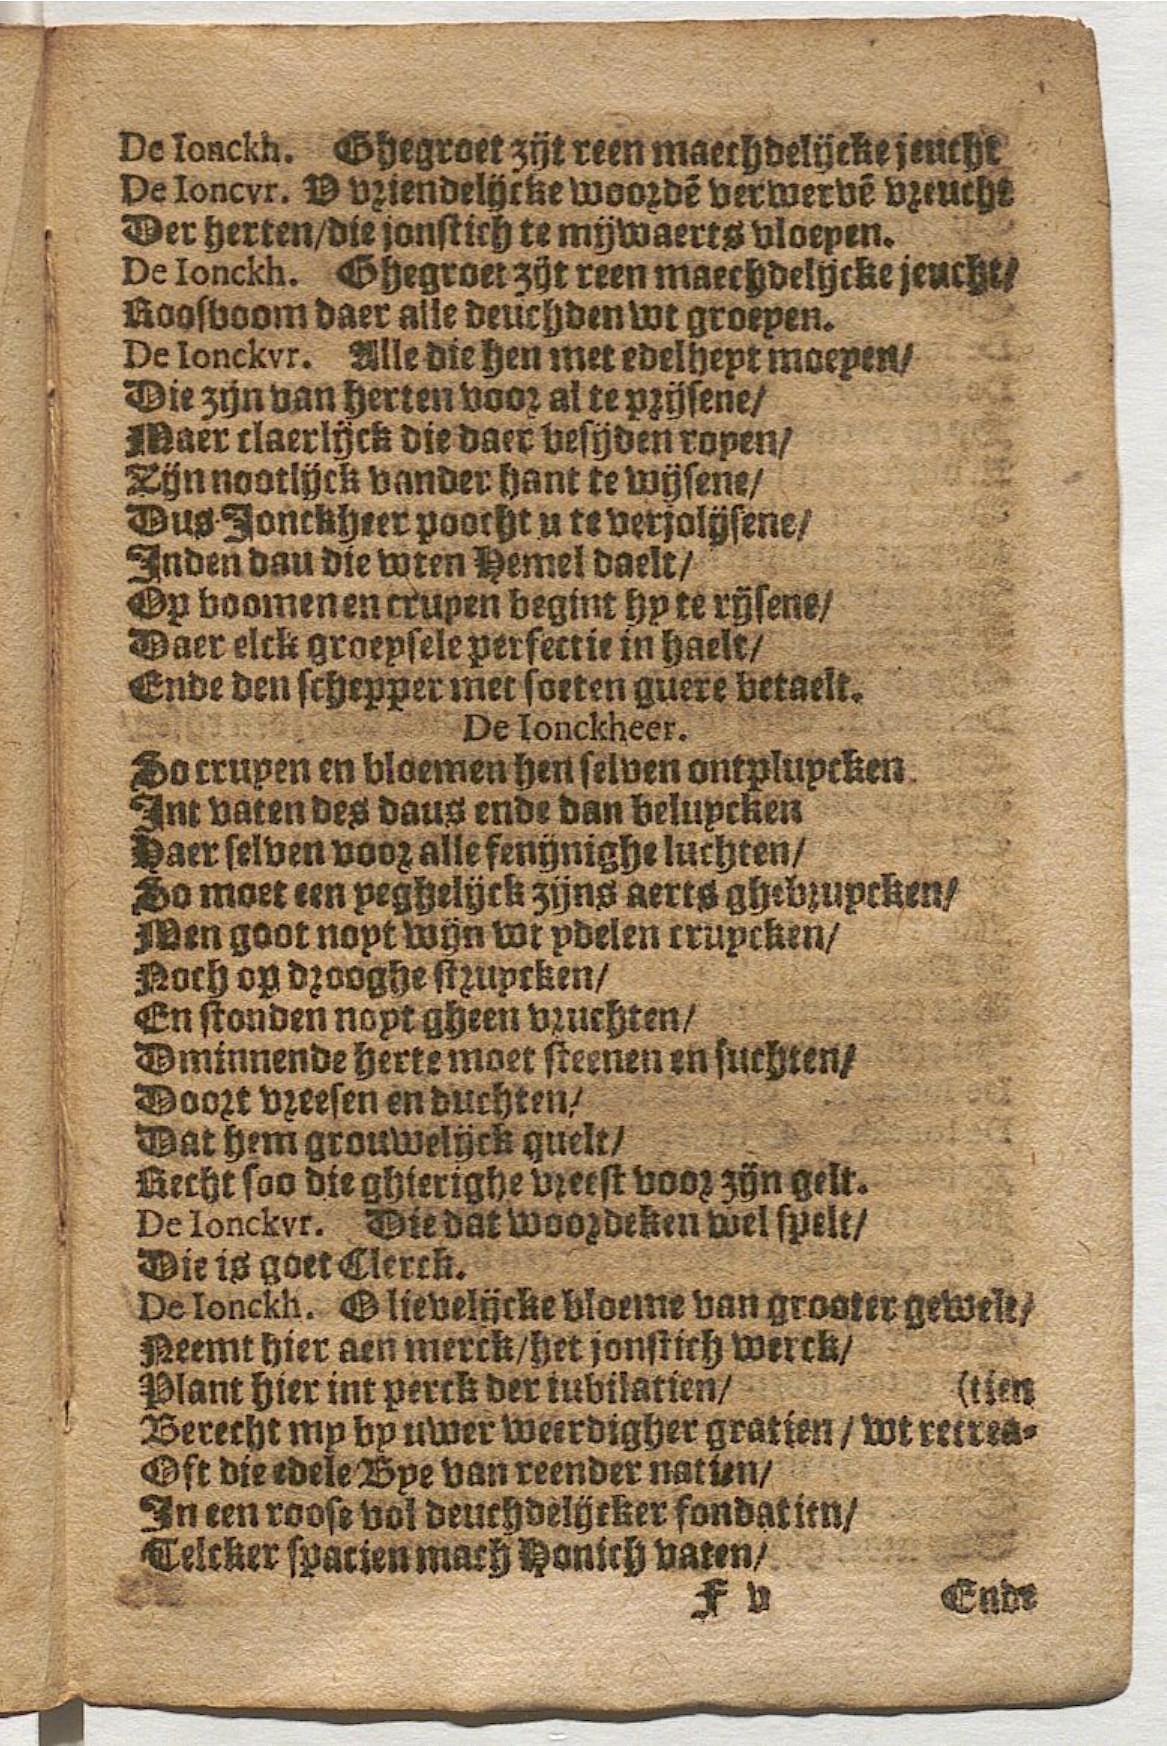 De Ionckh. Ghegroet zijt reen maechdelijcke jeucht
De Ioncvr. V vriendelijcke woordē verwervē vreucht
Der herten/die jonstich te mijwaerts vloeyen.
De Ionckh. Ghegroet zijt reen maechdelijcke jeucht/
Roosboom daer alle deuchden wt groeyen.
De Ionckvr. Alle die hen met edelheyt moeyen/
Die zijn van herten voor al te prijsene/
Maer claerlijck die daer besijden royen/
Zijn nootlijck vander hant te wijsene/
Dus Jonckheer poocht u te verjolijsene/
Inden dau die wten Hemel daelt/
Op boomen en cruyen begint hy te rijsene/
Daer elck groeysele perfectie in haelt/
Ende den schepper met soeten guere betaelt.
De Ionckheer.
So cruyen en bloemen hen selven ontpluycken
Int vaten des daus ende dan beluycken
Haer selven voor alle fenijnighe luchten/
So moet een yeghelijck zijns aerts ghebruycken/
Men goot noyt wijn wt ydelen cruycken/
Noch op drooghe struycken/
En stonden noyt gheen vruchten/
Dminnende herte moet steenen en suchten/
Doort vreesen en duchten/
Dat hem grouwelijck quelt/
Recht soo die ghierighe vreest voor zijn gelt.
De Ionckvr. Die dat woordeken wel spelt/
Die is goet Clerck.
De Ionckh. O lievelijcke bloeme van grooter gewelt/
Neemt hier aen merck/het jonstich werck/
Plant hier int perck der iubilatien/ (tien
Berecht my by uwer weerdigher gratien / wt recrea-
Oft die edele Bye van reender natien/
In een roose vol deuchdelijcker fondatien/
Telcker spacien mach Honich vaten/
F v Ende